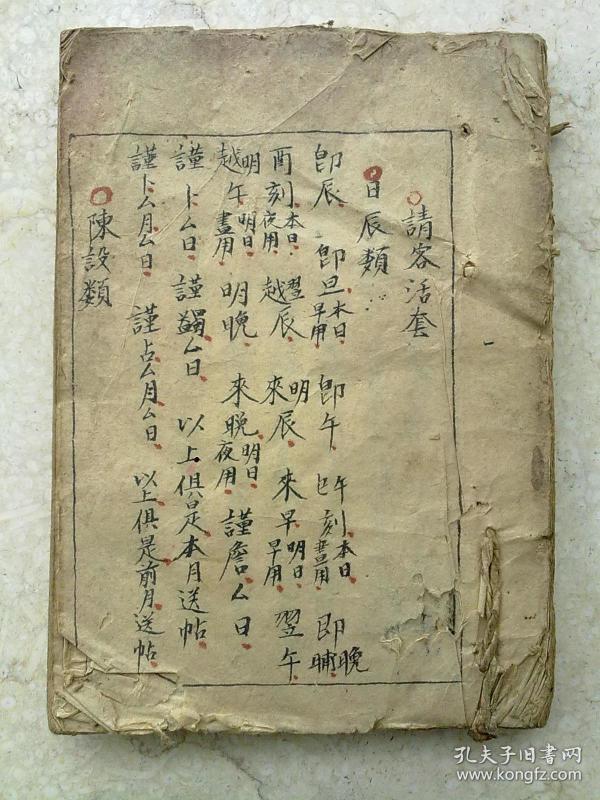 請客活套
日辰類
即辰 即旦本日早用 即午 午刻本日晝用 即晚晡
酉刻本日夜用 越辰 來辰 明 來早明日早用 翌午
越明午明日晝用 明晚 來晚明日夜用 謹詹厶日
謹卜厶日 謹蠲厶日 以上俱是本月送帖
謹卜厶月厶日 謹占厶月厶日 以上俱是前月送帖
陳設類
孔夫子旧書网
www.kongfz.com